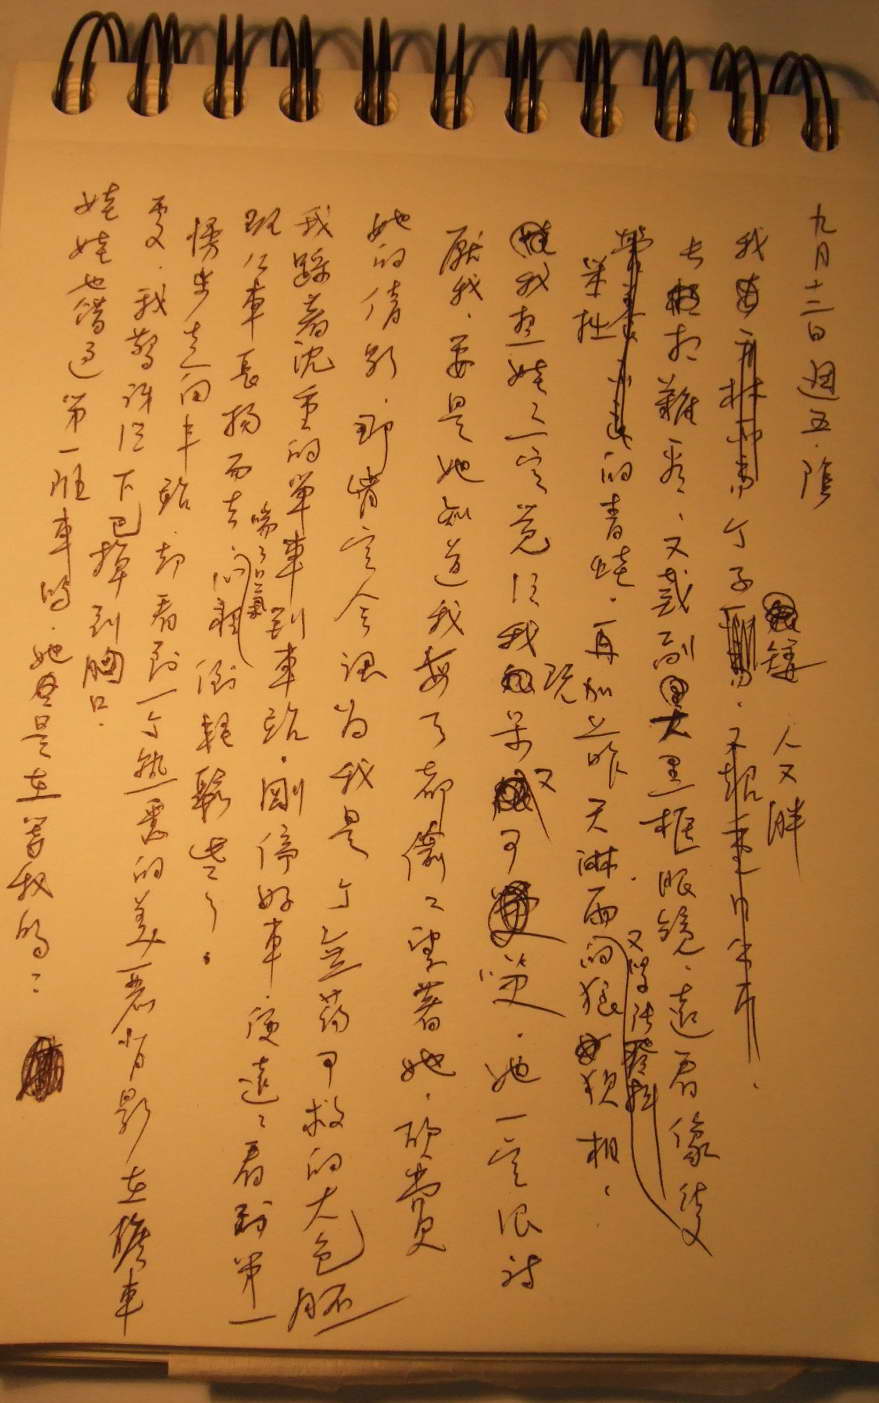 九月十三日 週五．陰
我 個子 矮 人又胖
長相難看、又戴副大黑框眼鏡、遠看像隻
又笨拙
笨拙的青蛙．再加上昨天淋雨的狼狽相、
我想娃娃一定覺得我既笨又可笑．她一定很討
厭我．要是她知道我每天都偷偷望著她．欣賞
她的倩影．那肯定會認為我是個無藥可救的大色胚
我踩著沈重的單車到車站．剛停好車．便遠遠看到第一
班公車長揚而去．喘了口氣 心裡倒輕鬆些了。
慢步走向車站．却看到一個熟悉的美麗背影在候車
處．我驚訝得下巴掉到胸口．
娃娃也錯過第一班車嗎．她是在等我嗎？